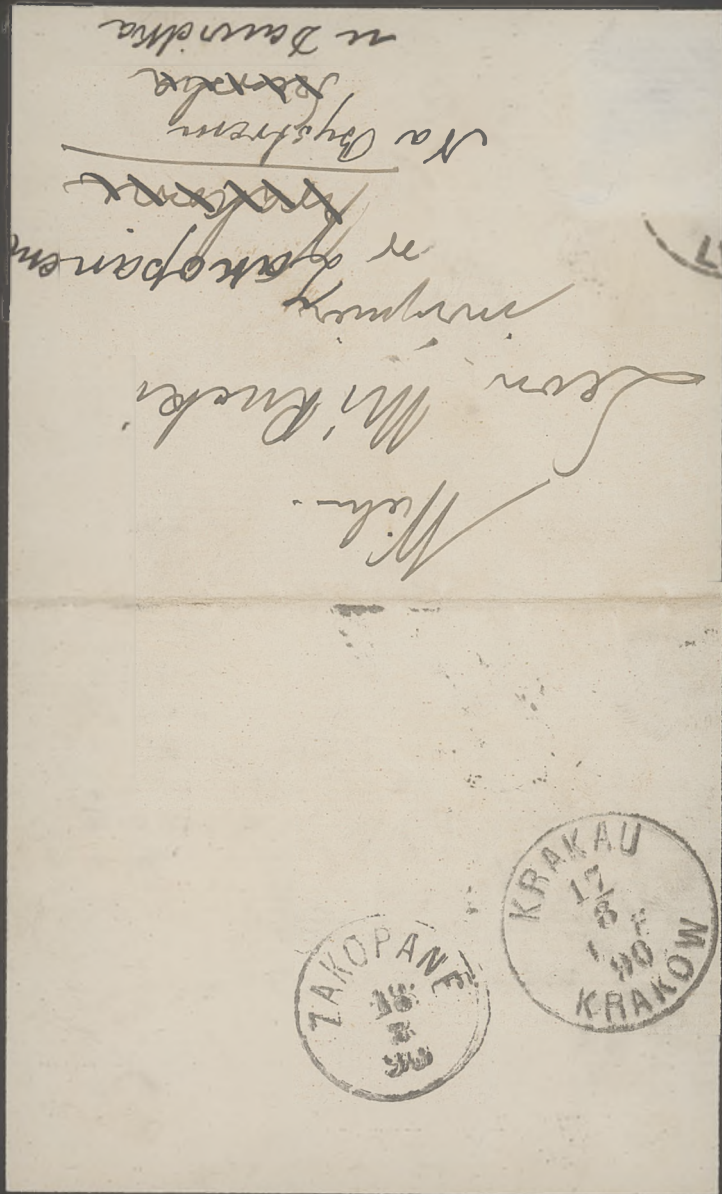 Wiel.
Leon Mikucki
inżynier
w Zakopanem
Na Bystrem
u Dawidka
KRAKAU
17
8
90
KRAKÓW
ZAKOPANE
18